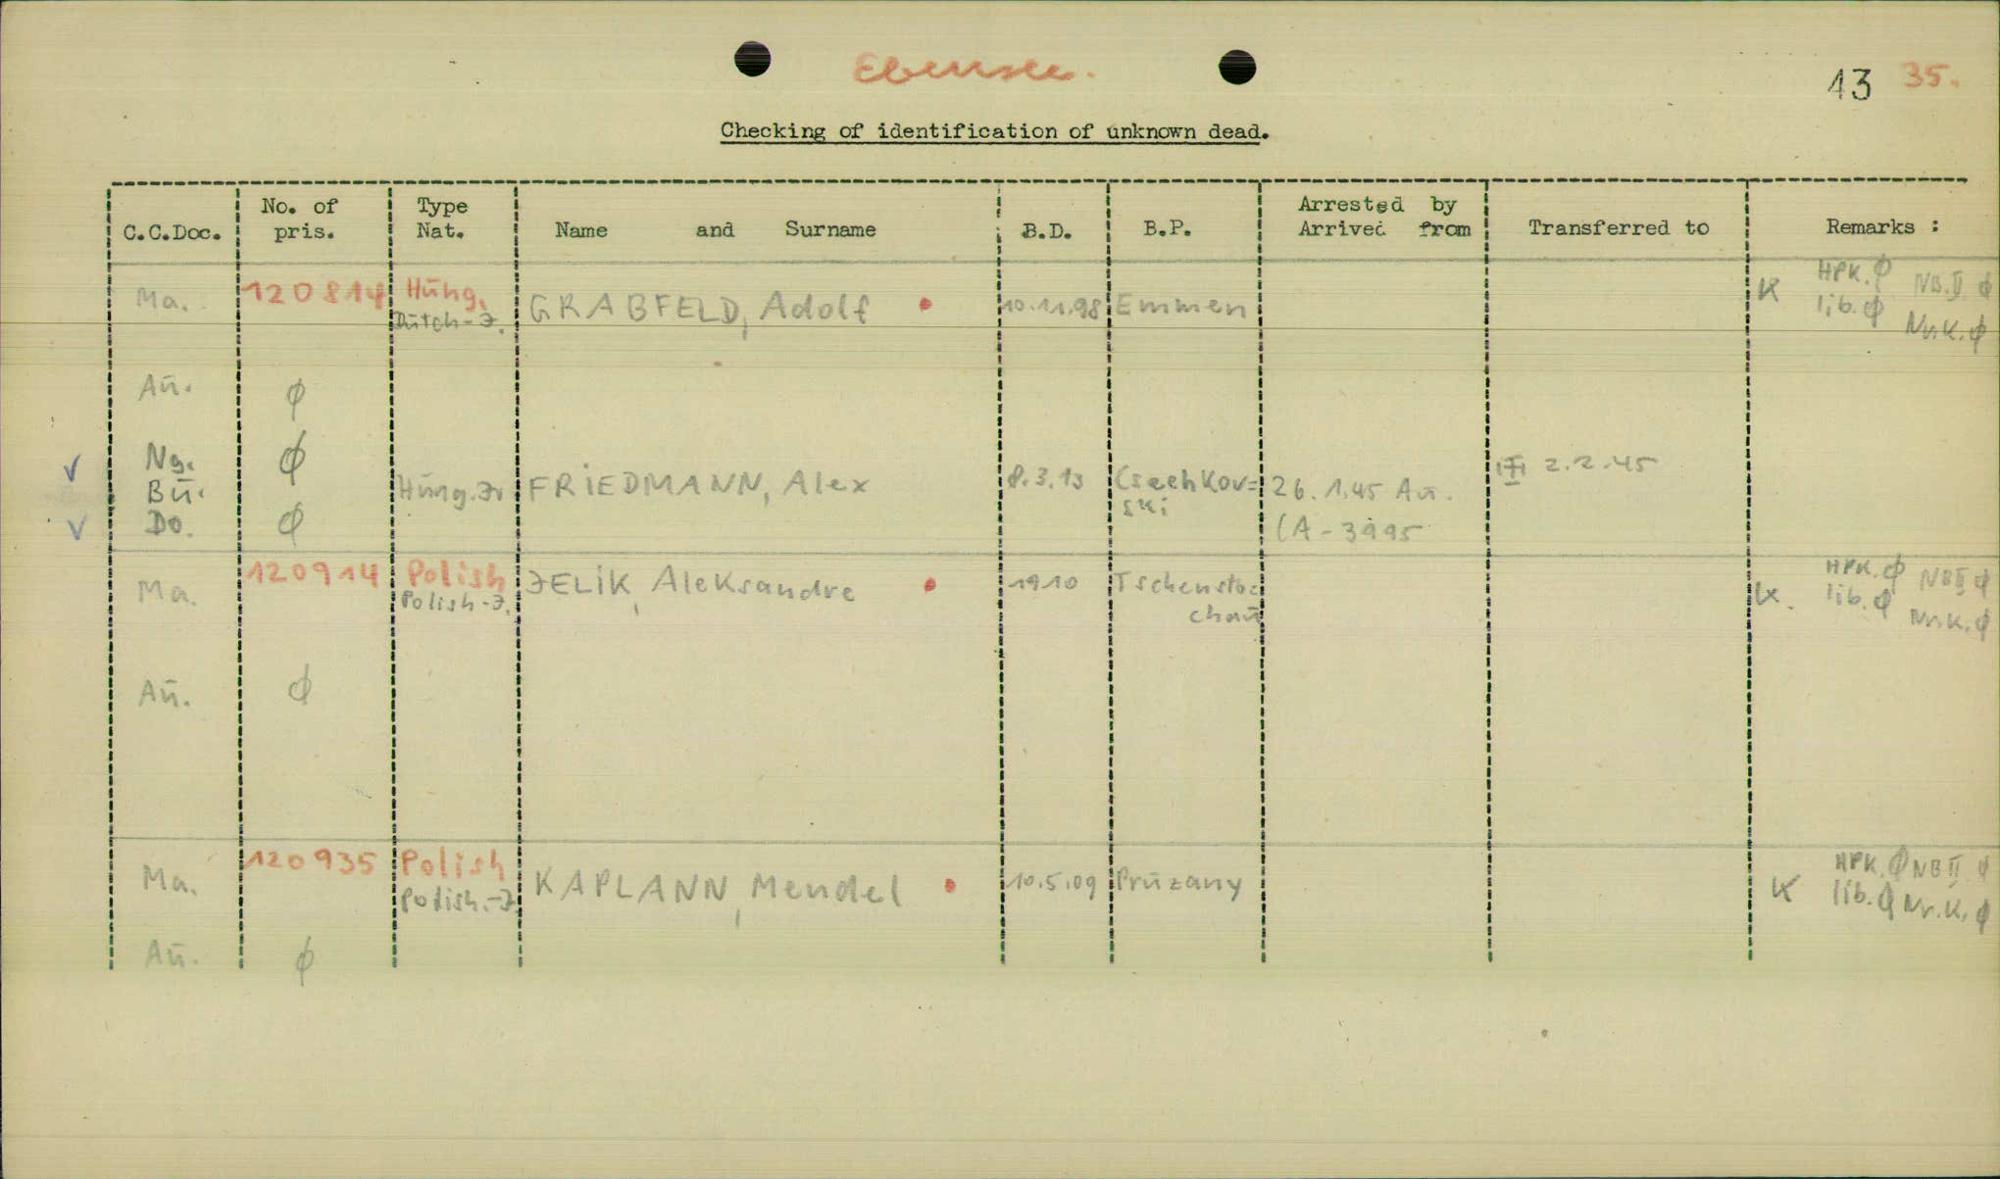 Ebensee.
43 35.
Checking of identification of unknown dead.
C.C.Doc. No. of pris. Type Nat. Name and Surname B.D. B.P. Arrested by Arrived from Transferred to Remarks :
Ma. 120814 Hung. GRABFELD, Adolf 10.11.98 Emmen HPK. ϕ NB.II ϕ
Dutch-J. lib. ϕ Nr.K. ϕ
Au. ϕ
Ng. ϕ
Bu. Hung. Jr FRIEDMANN, Alex 8.3.13 Csechkov= 26.1.45 Au. 2.2.45
ski
Do. ϕ (A-3995
Ma. 120914 Polish JELIK, Aleksandre 1910 Tschensto= HPK. ϕ NBII ϕ
Polish-J. chau lib. ϕ Nr.K. ϕ
Au. ϕ
Ma. 120935 Polish KAPLANN, Mendel 10.5.09 Pruzany HPK. ϕ NBII ϕ
Polish.-J. lib. ϕ Nr.K. ϕ
Au. ϕ